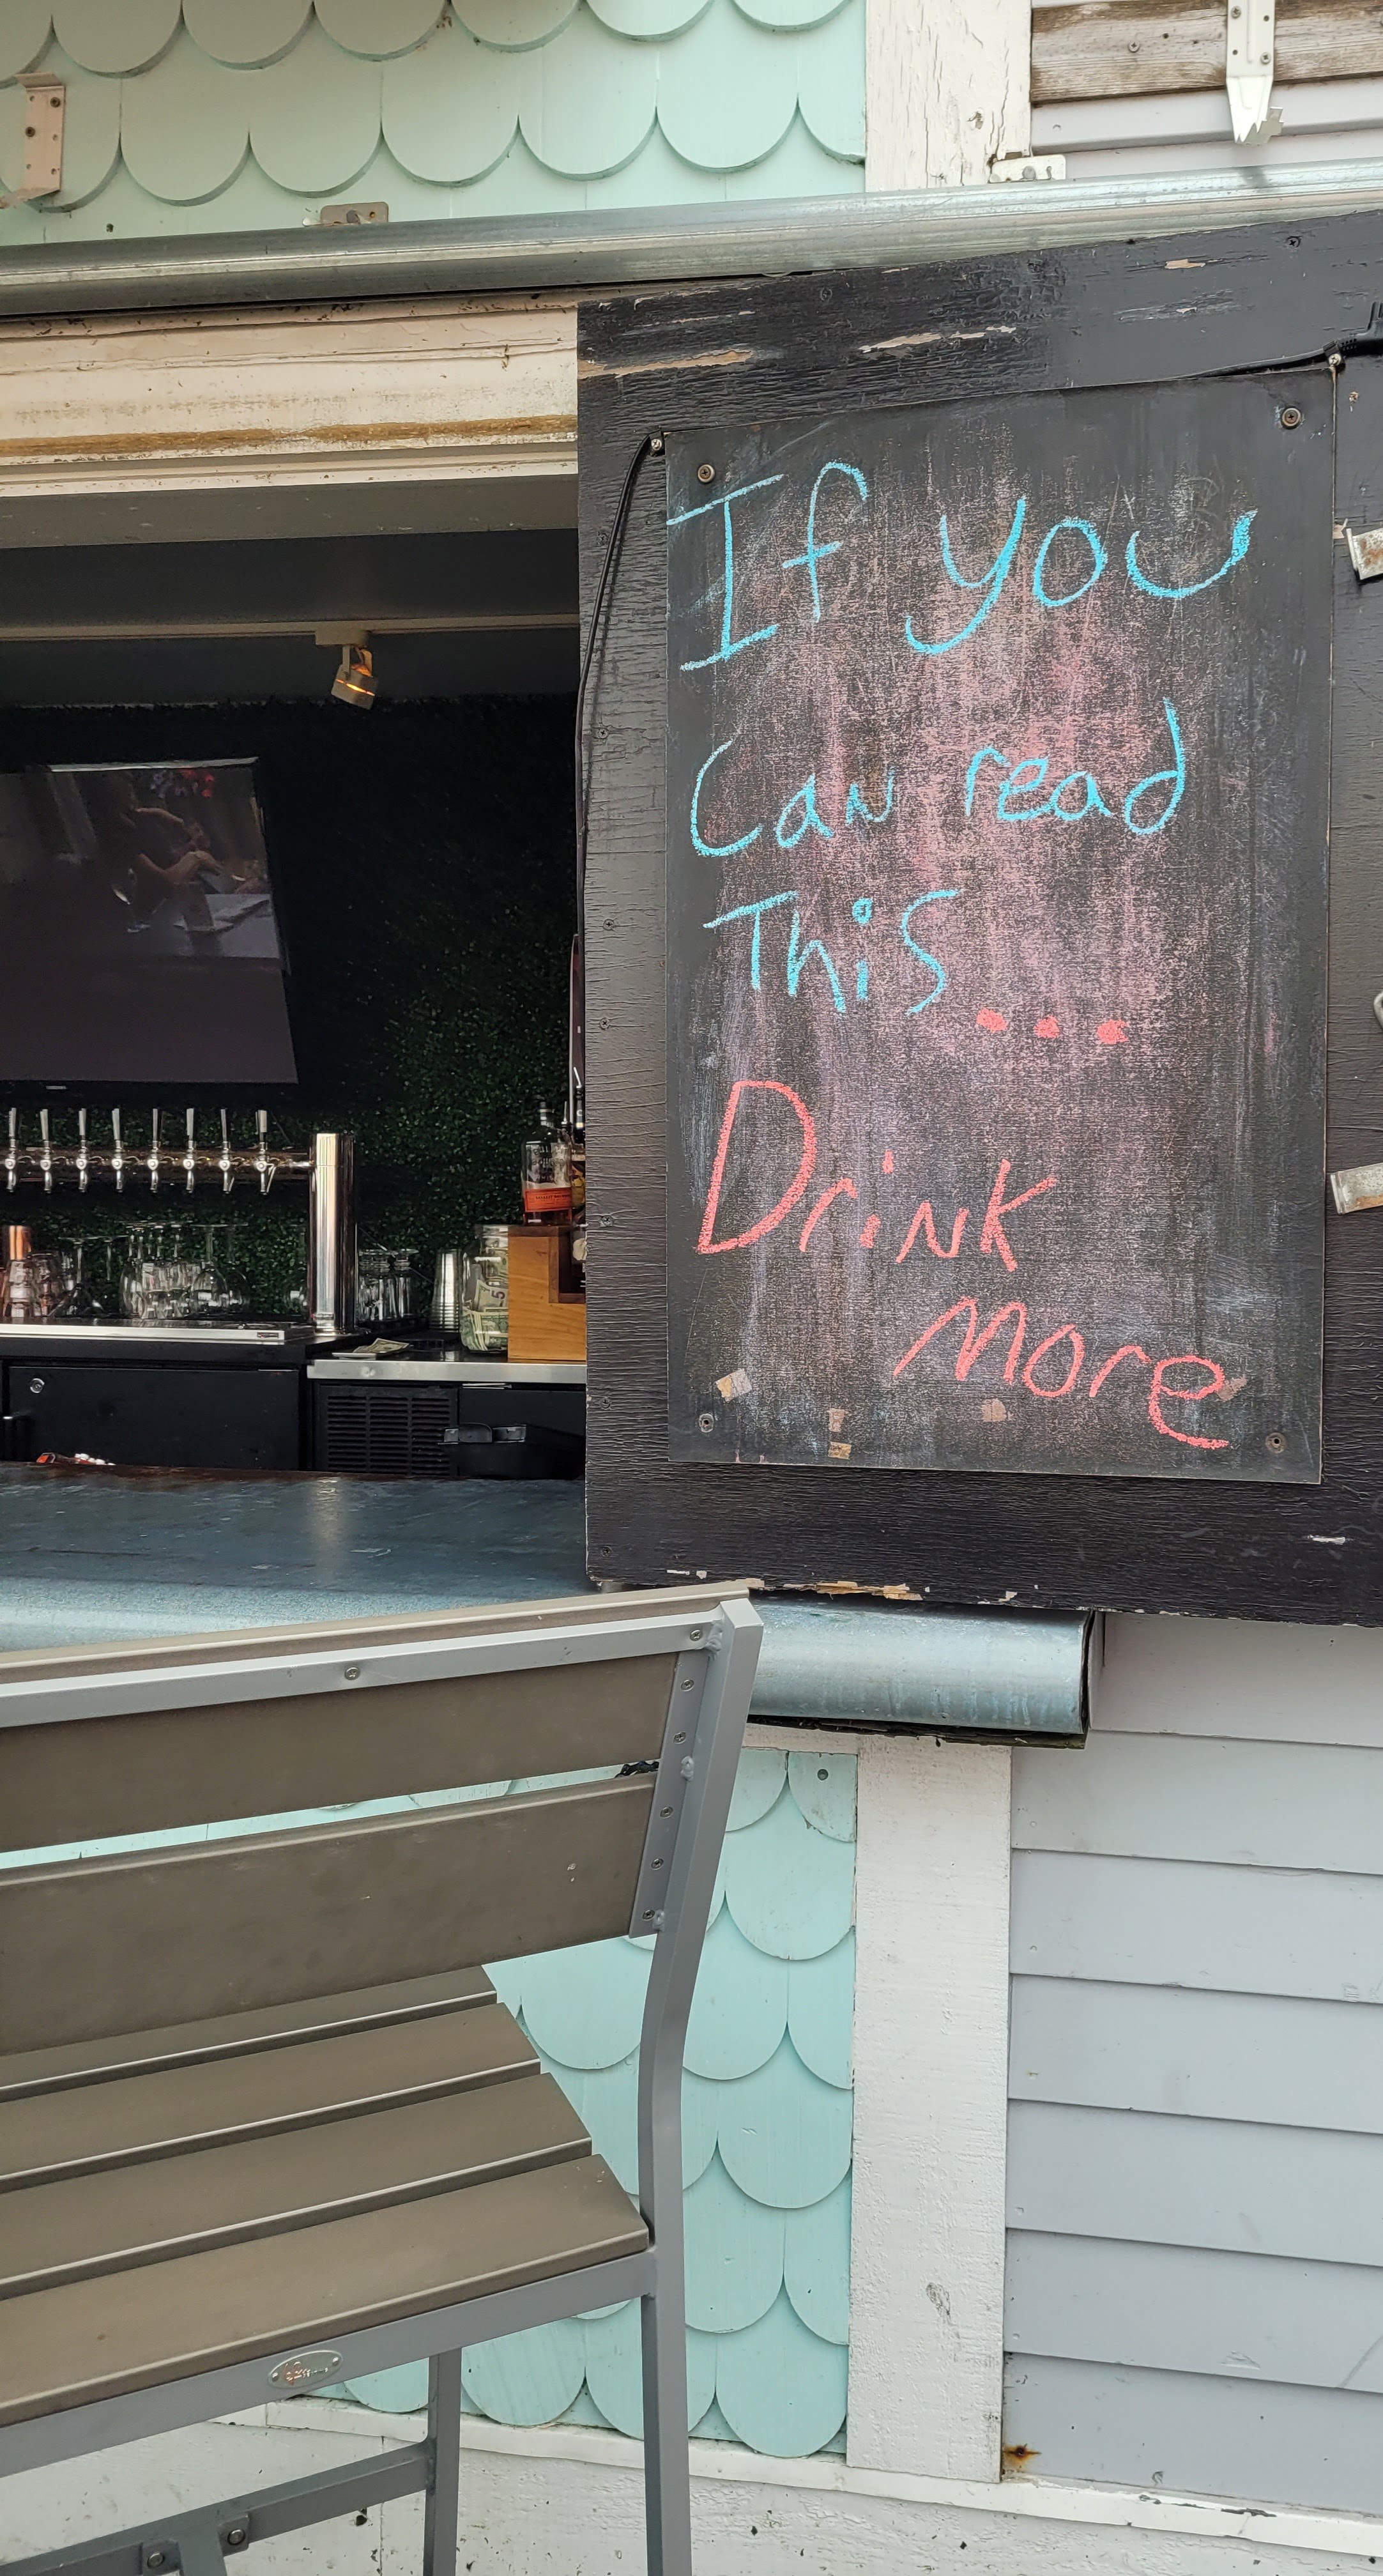 If you
Can read
This...
Drink
more